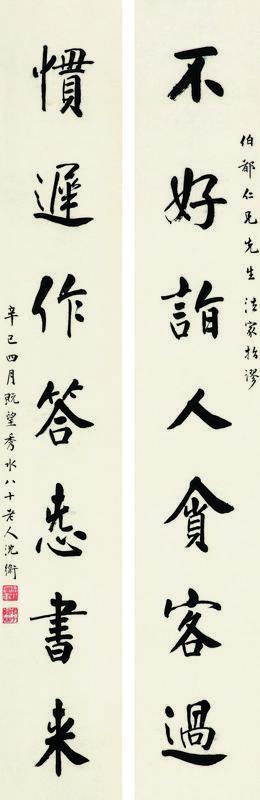 伯仁兄先生法家指謬
不好詣人貪客過
慣遲作答㤅書来
辛巳四月既望秀水八十老人沈衛